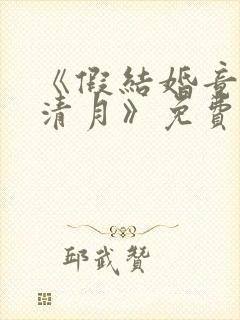 《假結婚竟
清月》免費
邱武贊